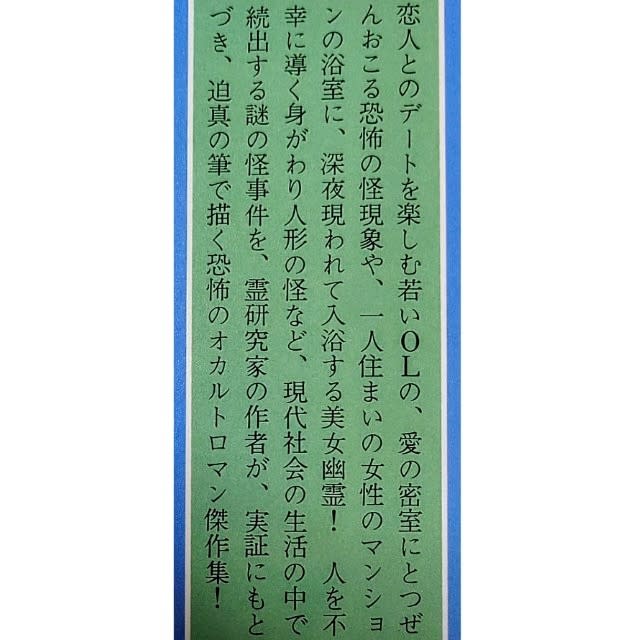 恋人とのデートを楽しむ若いOLの、愛の密室にとつぜ
んおこる恐怖の怪現象や、一人住まいの女性のマンショ
ンの浴室に、深夜現われて入浴する美女幽霊！　人を不
幸に導く身がわり人形の怪など、現代社会の生活の中で
続出する謎の怪事件を、霊研究家の作者が、実証にもと
づき、迫真の筆で描く恐怖のオカルトロマン傑作集！